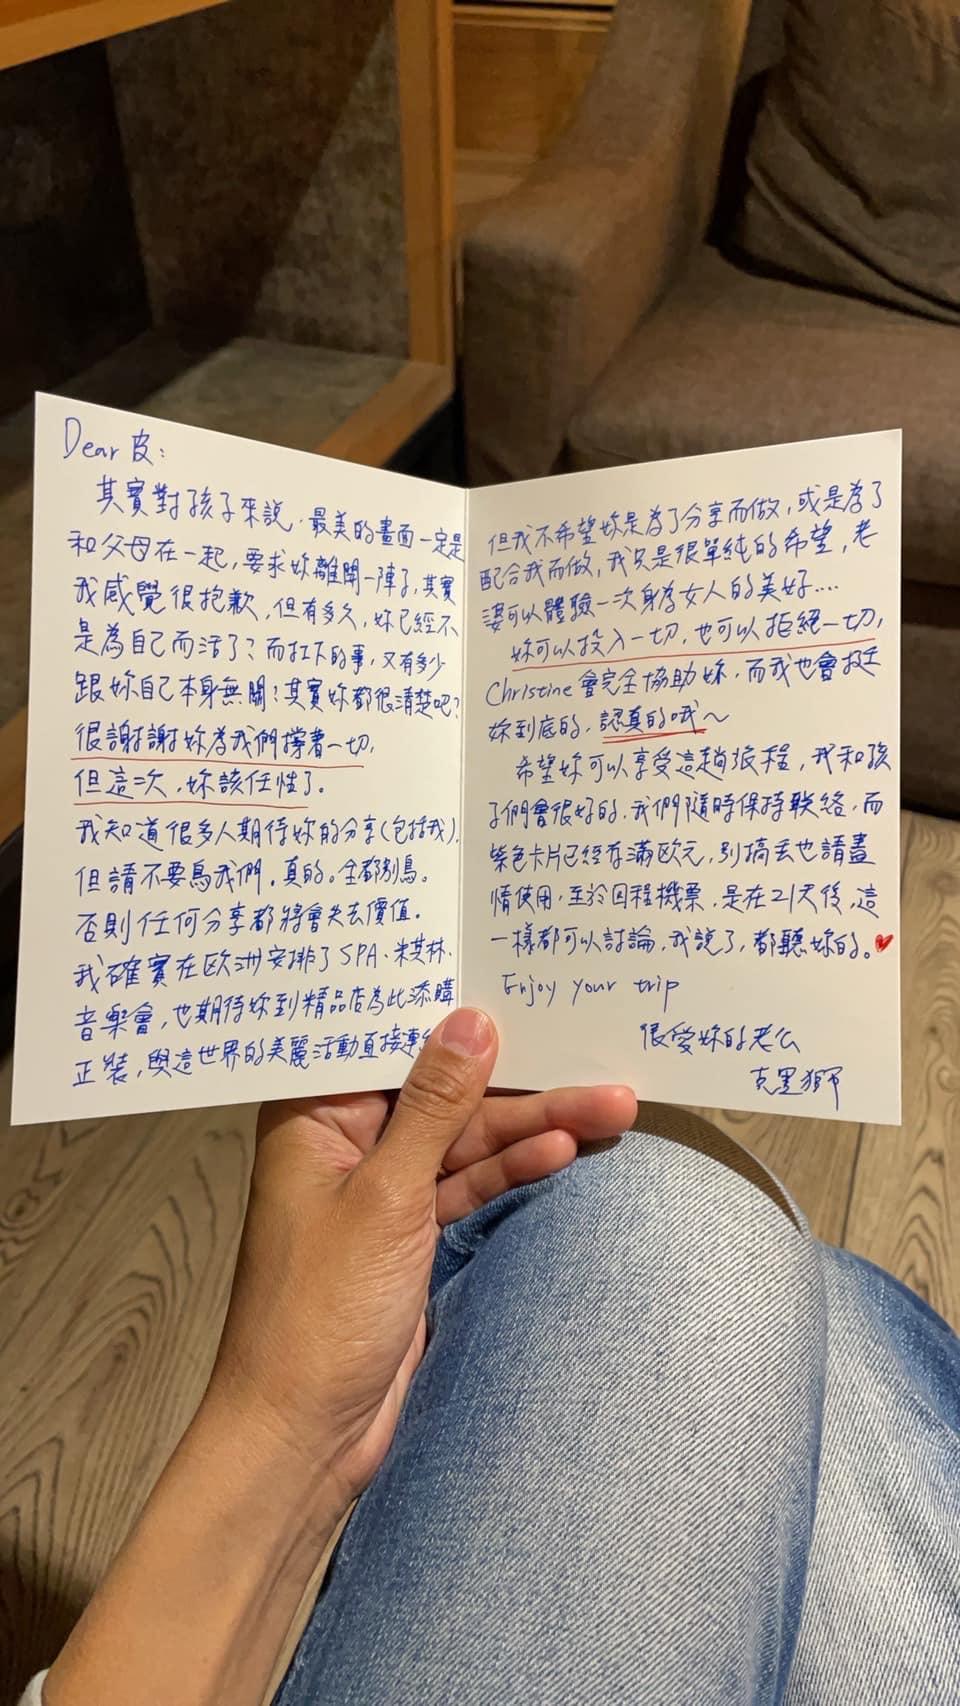 Dear 皮：
其實對孩子來說，最美的畫面一定是
和父母在一起，要求妳離開一陣子，其實
我感覺很抱歉，但有多久，妳已經不
是為自己而活了？而扛下的事，又有多少
跟妳自己本身無關？其實妳都很清楚吧？
很謝謝妳為我們撐著一切，
但這次，妳該任性了。
我知道很多人期待妳的分享(包括我)，
但請不要鳥我們。真的。全都別鳥。
否則任何分享都將會失去價值。
我確實在歐洲安排了SPA、米其林、
音樂會，也期待妳到精品店為此添購
正裝，與這世界的美麗活動直接連
但我不希望妳是為了分享而做，或是為了
配合我而做，我只是很單純的希望，老
婆可以體驗一次身為女人的美好....
妳可以投入一切，也可以拒絕一切，
Christine會完全協助妳，而我也會挺
妳到底的，認真的哦～
希望妳可以享受這趟旅程，我和孩
子們會很好的，我們隨時保持聯絡，而
紫色卡片已經存滿歐元，別搞丟也請盡
情使用，至於回程機票，是在21天後，這
一樣都可以討論，我說了，都聽妳的。❤
Enjoy your trip
很愛妳的老公
克里獅